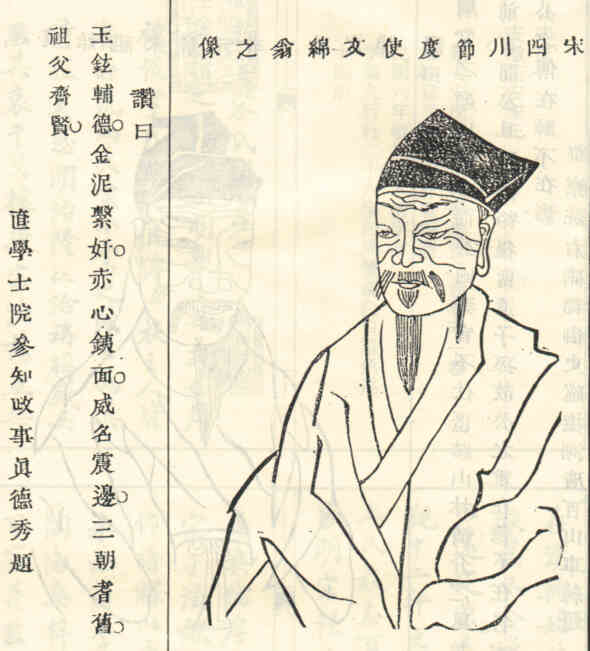 宋四川節度使文綿翁之像
讚曰
王鉉輔德金泥繫奸赤心鐵面威名震邊三朝耆舊
祖父齊賢
直學士院參知政事真德秀題